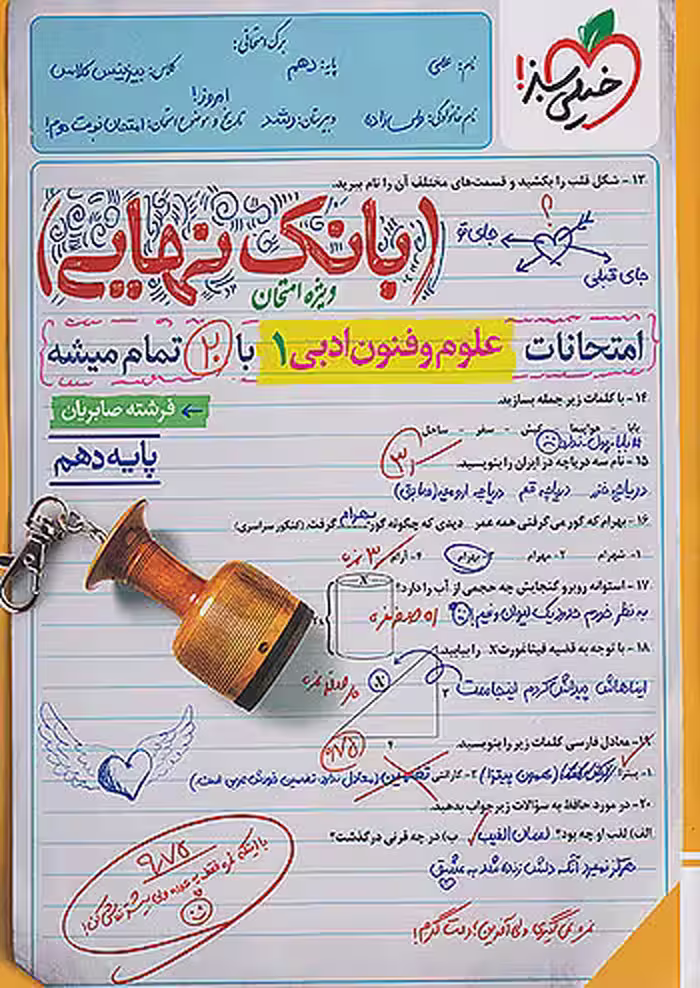 خیلی سبز!
برگ امتحانی:
نام: علی
پایه: دهم
کلاس: بیزینس کلاس
نام خانوادگی:
دبیرستان: رشد
تاریخ و موضوع امتحان: امتحان نوبت دوم!
امروز!
۱۳- شکل قلب را بکشید و قسمت‌های مختلف آن را نام ببرید.
؟
جای تو
جای قبلی
(بانک نهایی)
ویژه امتحان
امتحانات علوم و فنون ادبی ۱ با ۲۰ تمام میشه
۱۴- با کلمات زیر جمله بسازید.
← فرشته صابریان
بابا - هواپیما - کیش - سفر - ساحل
#بابا پول ندارد
پایه دهم
۱۵- نام سه دریاچه در ایران را بنویسید.
دریاچه خزر دریاچه قم دریاچه ارومیه (سابق)
۱۶- بهرام که گور می‌گرفتی همه عمر دیدی که چگونه گور بهرام گرفت. (کنکور سراسری)
۱- شهرام ۲- مهرام ۳- بهرام ۴- آرام
۱۷- استوانه روبرو گنجایش چه حجمی از آب را دارد؟
به نظر خودم حدود یک لیوان و نیم!
۱۸- با توجه به قضیه فیثاغورث X را بیابید.
ایناهاش پیداش کردم اینجاست
X
۲
۱۹- معادل فارسی کلمات زیر را بنویسید.
۱- پیتزا
۲- گارانتی تضمین
۲۰- در مورد حافظ به سؤالات زیر جواب بدهید.
الف) لقب او چه بود؟ لسان الغیب ب) در چه قرنی درگذشت؟
هرگز نمیرد آنکه دلش زنده شد به عشق
۹/۷۵
نمره نمی‌گیری ولی آفرین! دمت گرم!